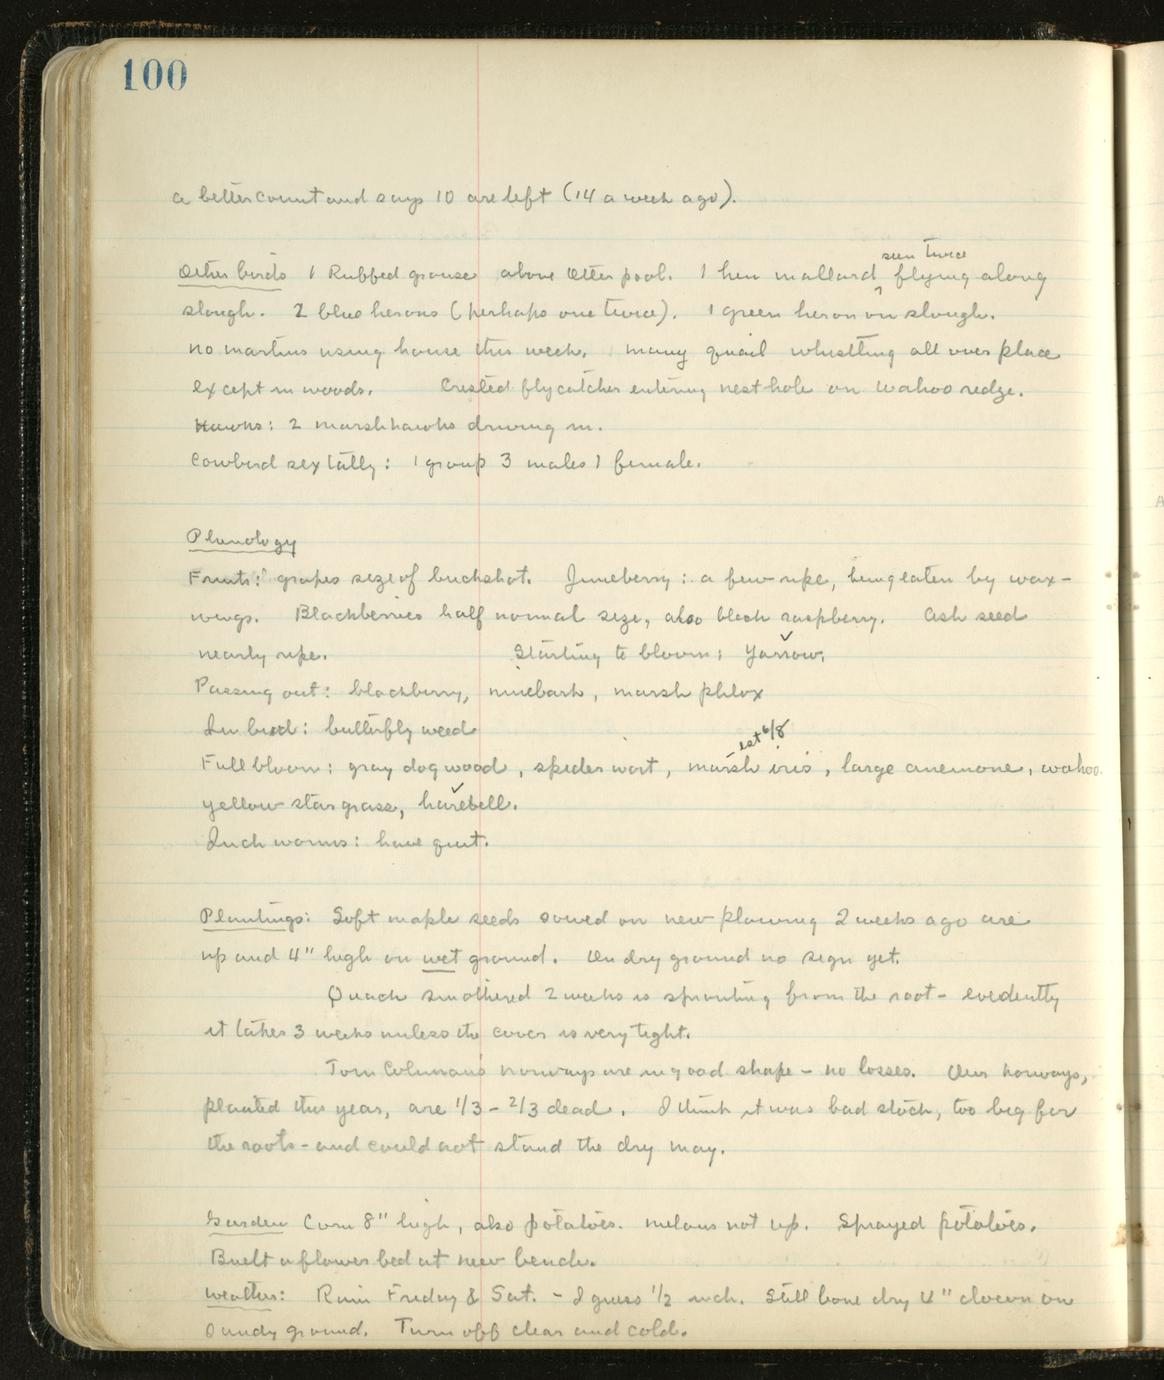 100
a better count and says 10 are left (14 a week ago).
Other birds 1 Ruffed grouse above Otter pool. 1 hen mallard seen twice flying along
slough. 2 blue herons (perhaps one twice). 1 green heron on slough.
no martins using house this week. many quail whistling all over place
except in woods. Crested flycatcher entering nest hole on Wahoo redge.
Hawks: 2 marsh hawks driving in.
Cowbird sex tally: 1 group 3 males 1 female.
Phenology
Fruits: grapes size of buckshot. Juneberry: a few ripe, being eaten by wax-
wings. Blackberries half normal size, also black raspberry. Ash seed
nearly ripe. Starting to bloom: Yarrow,
Passing out: blackberry, ninebark, marsh phlox
In bud: butterfly weed
Full bloom: gray dogwood, spiderwort, marsh iris 1st 6/8, large anemone, wahoo
yellow star grass, harebell.
Inch worms: have quit.
Plantings: Soft maple seeds sowed on new plowing 2 weeks ago are
up and 4" high on wet ground. On dry ground no sign yet.
Quack smothered 2 weeks is sprouting from the root - evidently
it takes 3 weeks unless the cover is very tight.
Tom Coleman's norways are in good shape - no losses. Our norways,
planted this year, are 1/3 - 2/3 dead. I think it was bad stock, too big for
the roots - and could not stand the dry may.
Garden Corn 8" high, also potatoes. melons not up. Sprayed potatoes.
Built a flower bed at new bench.
Weather: Rain Friday & Sat. - I guess 1/2 inch. Still bone dry 4" down on
sandy ground. Turn off clear and cold.